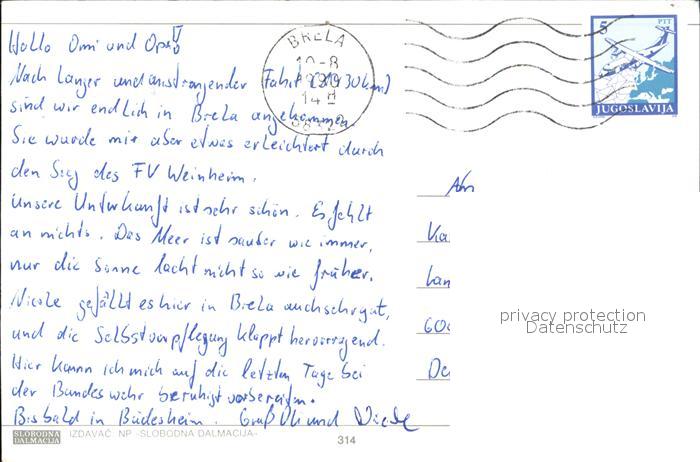 Hallo Omi und Opa!
Nach langer und anstrengender Fahrt (
sind wir endlich in Brela angekommen.
Sie wurde mir aber etwas erleichtert durch
den Sieg des FV Weinheim.
Unsere Unterkunft ist sehr schön. Es fehlt
an nichts. Das Meer ist sauber wie immer,
nur die Sonne lacht nicht so wie früher.
Nicole gefällt es hier in Brela auch sehr gut,
und die Selbstverpflegung klappt hervorragend.
Hier kann ich mich auf die letzten Tage bei
der Bundeswehr beruhigt vorbereiten.
Bis bald in Büdesheim. Gruß und Nicole
BRELA
10-8
14
5
PTT
JUGOSLAVIJA
An
Lan
privacy protection
Datenschutz
SLOBODNA
DALMACIJA
IZDAVAČ: NP «SLOBODNA DALMACIJA»
314